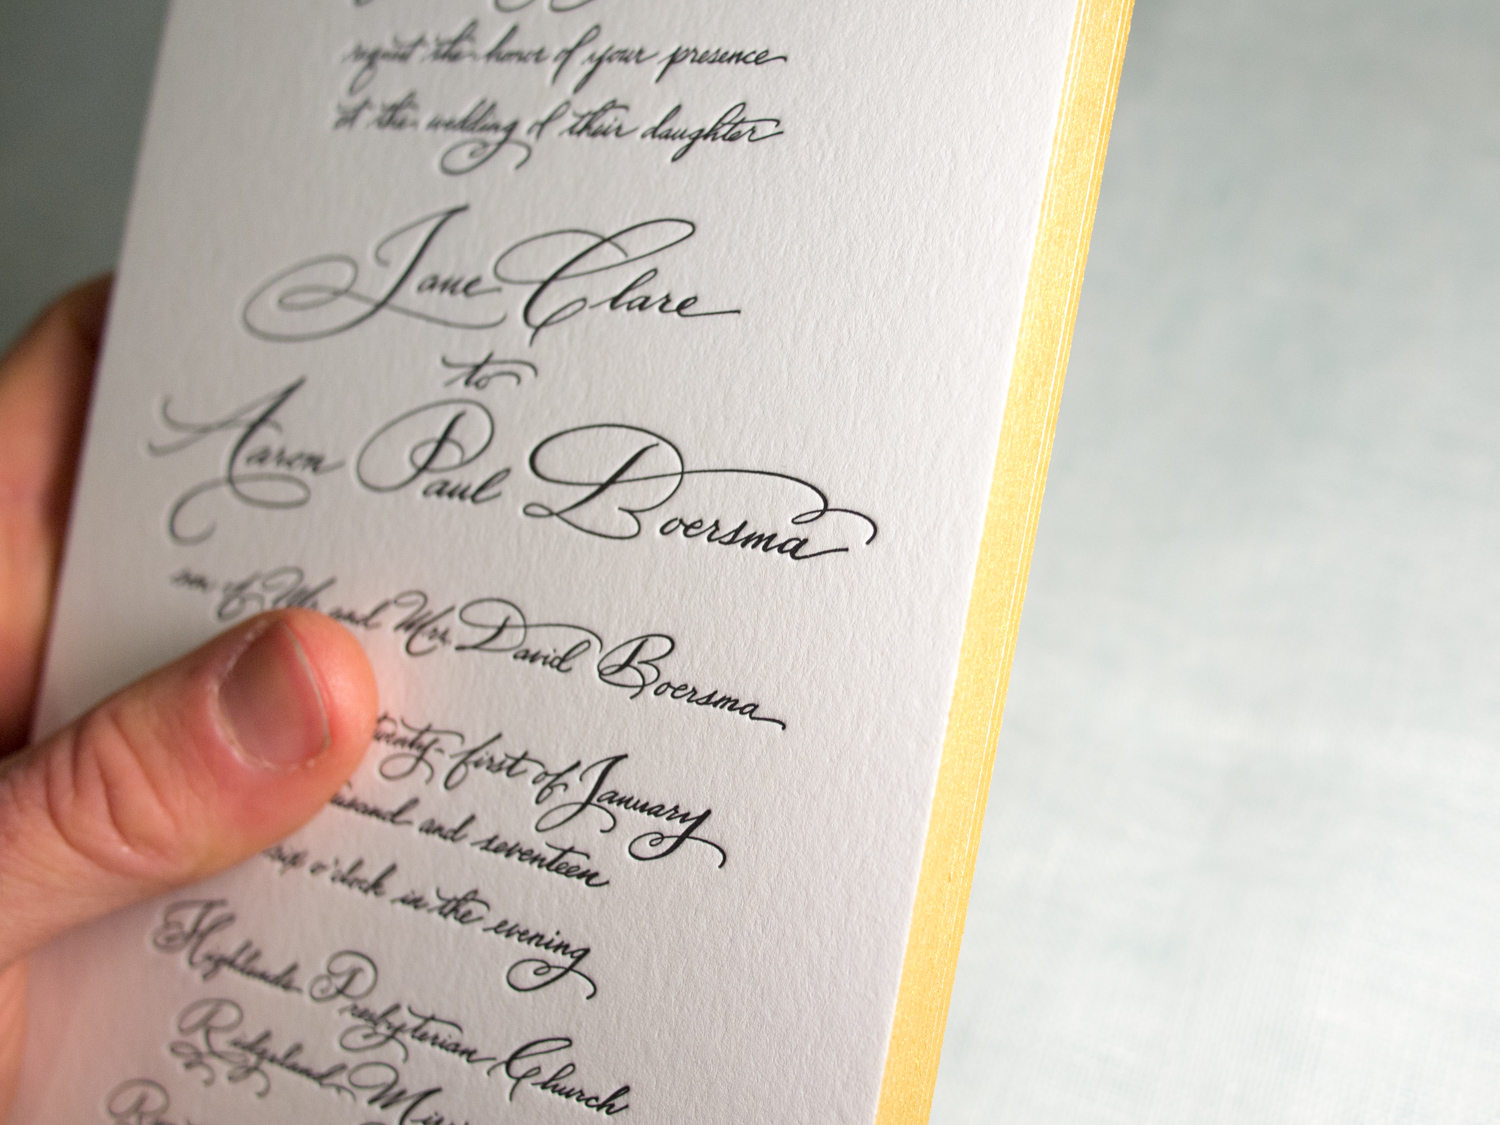 request the honor of your presence
at the wedding of their daughter
Jane Clare
to
Aaron Paul Boersma
son of Mr and Mrs. David Boersma
twenty-first of January
and seventeen
six o'clock in the evening
Highlands Presbyterian Church
Ridgeland